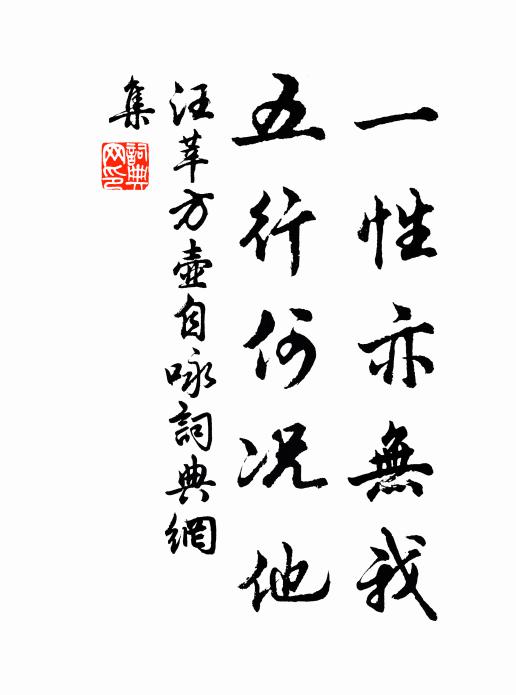 一性亦無我
五行何況他
汪莘方壺自咏詞典網
集
詞典
网印